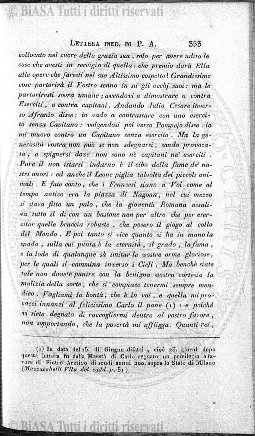 © BIASA Tutti i diritti riservati
LETTERA INED. DI P. A. 355
collocato nel cuore della grazia sua, solo per avere udito le
cose che avete in servigio di quella: che premio darà Ella
alle opere che farete nel suo Altissimo cospetto? Grandissimo
core partorirà il Vostro senno in su gli occhi suoi: ma lo
partorirete sovra umano; accendosi a dimostrare a contra
Eserciti, a contra capitani. Andando Julio Cesare diverso
Afranio disse: io vado a contrastare con uno esercito
senza Capitano: volgendosi poi verso Pompejo disse: io
mi muovo contro un Capitano senza esercito. Ma la generosità
vostra non può se non sdegnarsi, sendo provocata,
a spignersi dove non sono nè capitani ne' eserciti.
Pure il non istarsi indarno è il cibo della fame de' nostri
onori: ed anche il Leone piglia talvolta dei piccoli animali.
E fate conto, che i Francesi siano a Voi come al
tempo antico era la piazza di Nagona, nel cui mezzo
si stava fitto un palo, che la gioventù Romana assaliva
tutto il dì con un bastone non per altro che per esercitar
quelle braccia robuste, che posero il giogo al collo
del Mondo. E poi tanto si vive quanto si ha in mano la
spada, sulla cui punta è la eternità, il grado, la fama,
e la lode di qualunque sà imitar le nostre orme gloriose,
per le quali si cammina inverso i Cieli. Ma benchè siate
tale non dovete punire con la benigna vostra cortesia la
malizia della sorte, che si compiace tenermi sempre mendico.
Vagliami la bontà, ch' è in voi, e quella mi procacci
innanzi al felicissimo Carlo il pane (1): e poichè
vi siete degnato di raccogliermi dentro al vostro favore,
non sopportando, che la povertà mi affligga. Quanti rei,
(1) In data del
questa lettera fu dalla Maestà di Carlo segnato un privilegio a favore
di Pietro Aretino di scudi annui 200. sopra lo Stato di Milano
(Mazzucchelli Vita del
© BIASA Tutti i diritti riservati